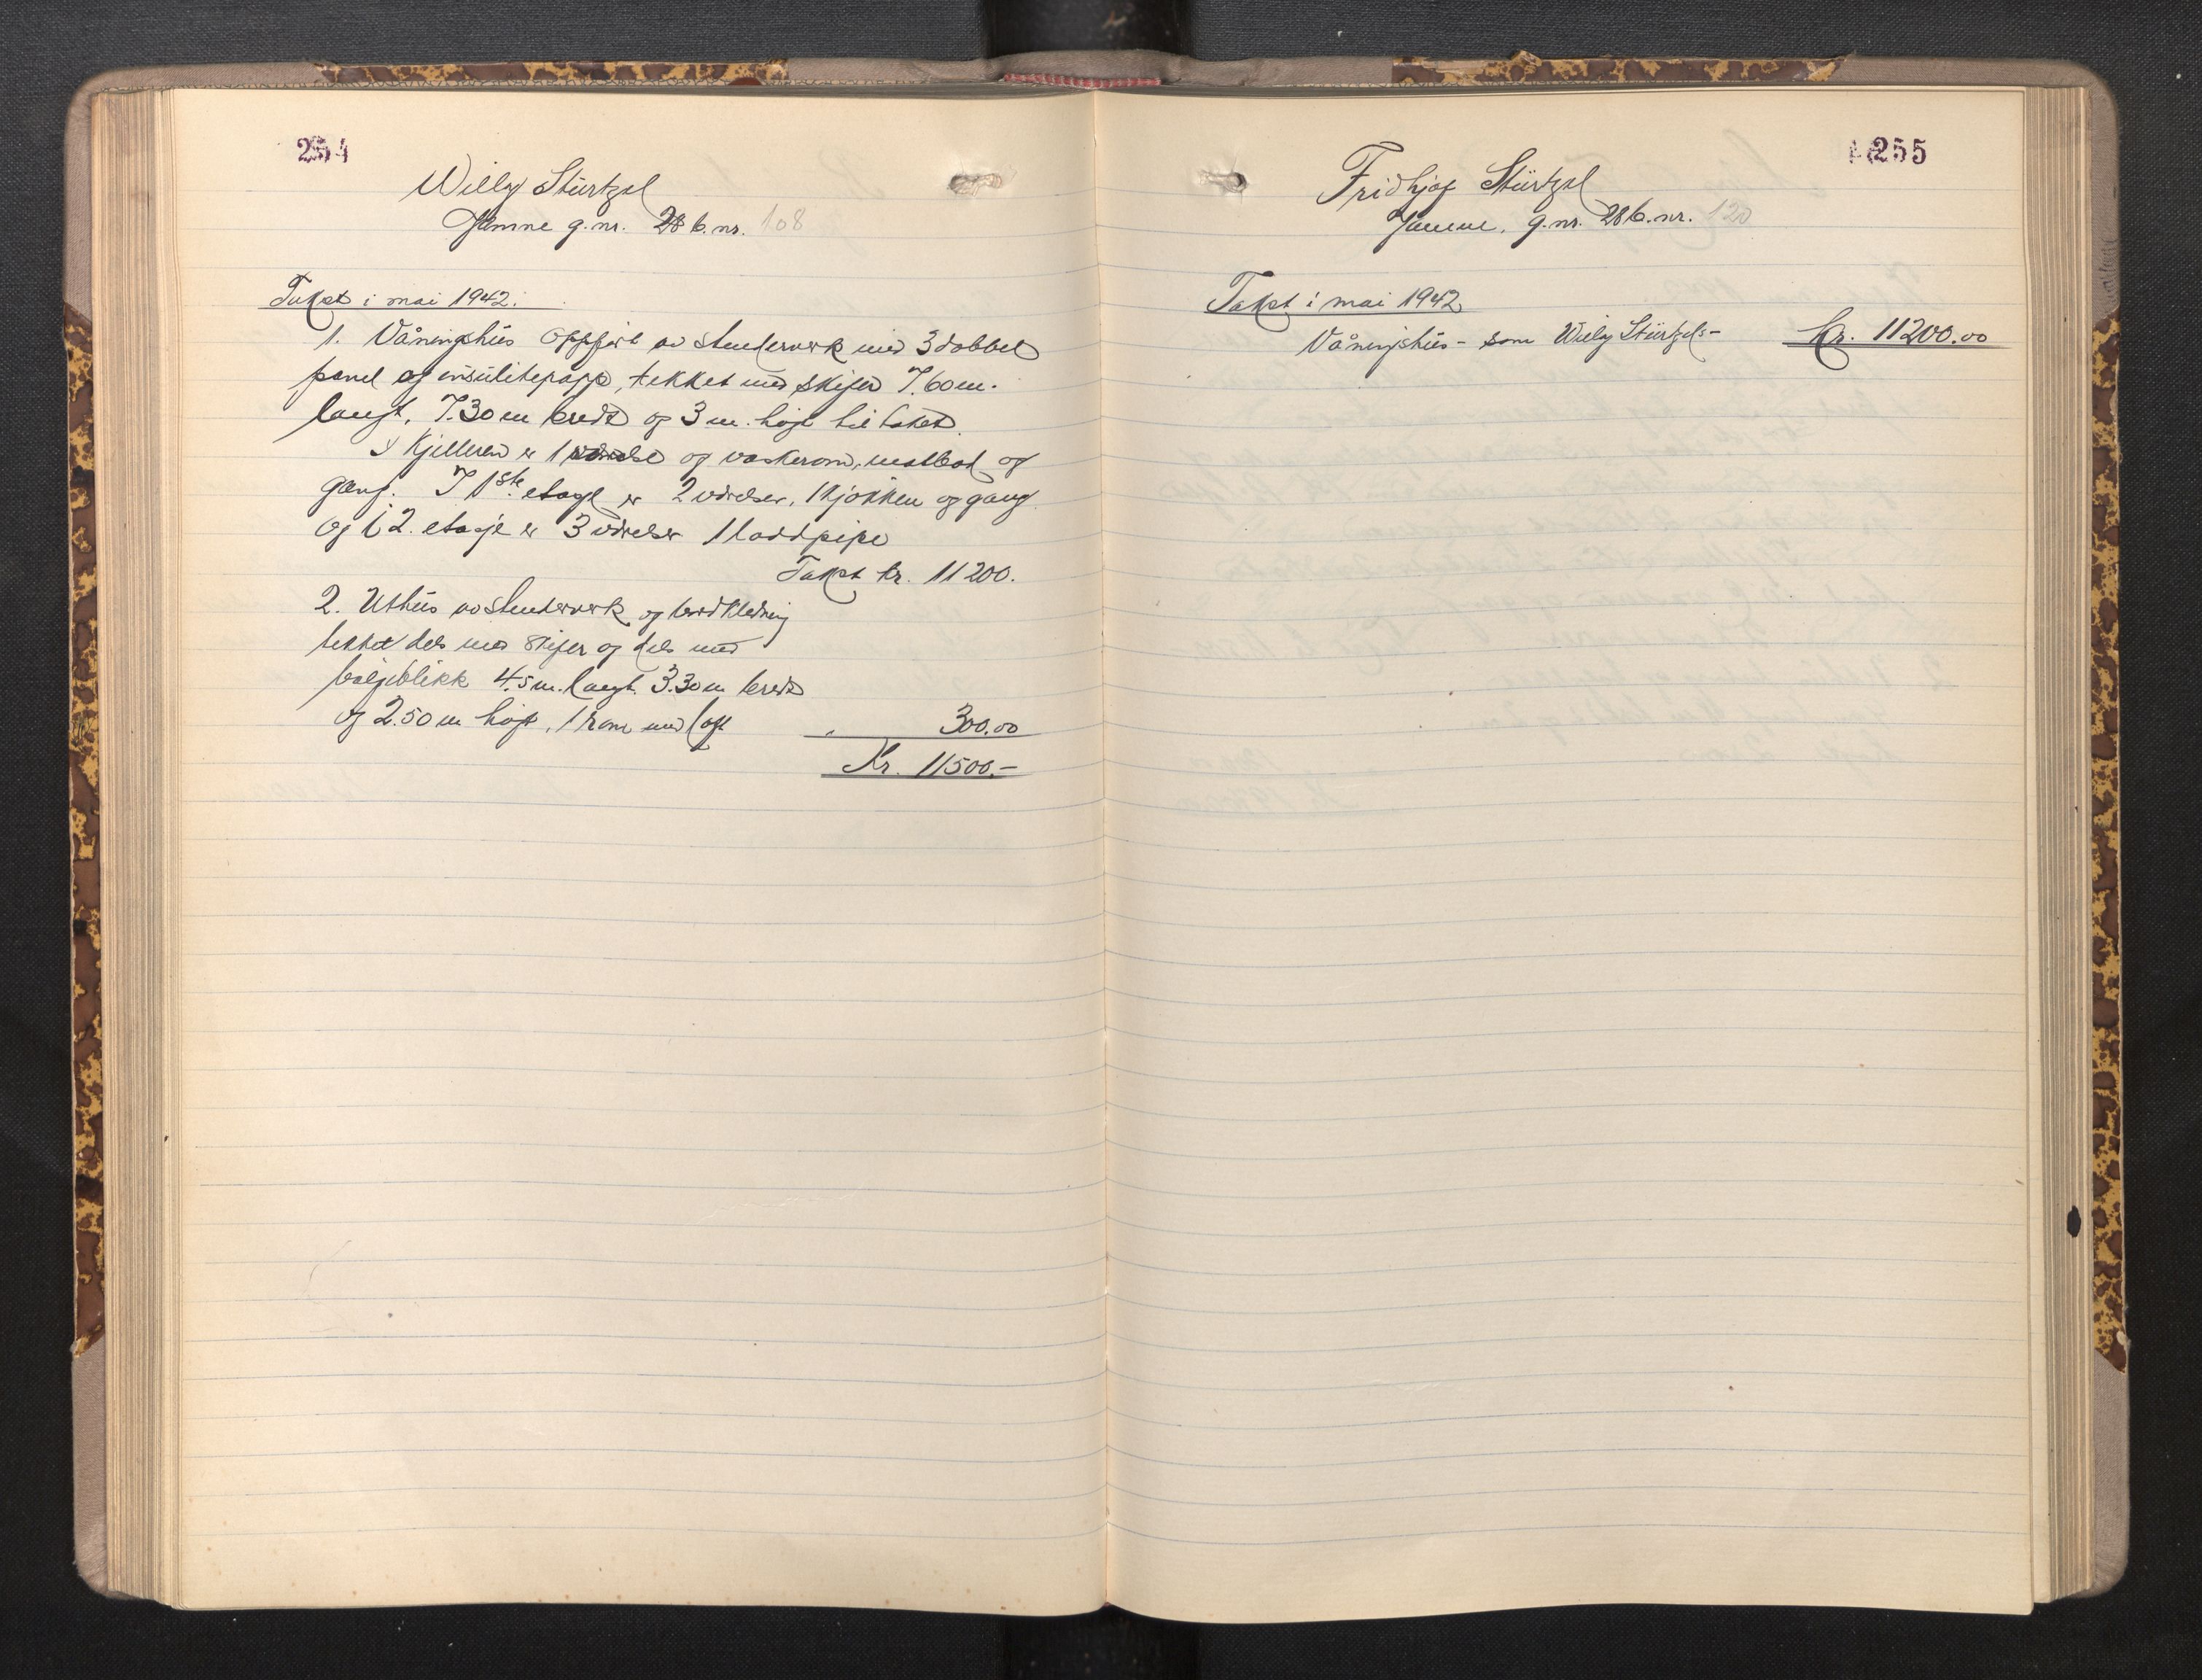 254
Willy Stürtzel
Jamne g.nr. 28 b.nr. 108
Takst i mai 1942.
1. Våningshus oppført av stenderverk med 3 dobbel
panel og insulitepapp, tekket med skifer 7.60 m.
langt, 7.30 m bredt og 3 m. högt til taket.
I kjelleren er 1 værelse og vaskerom, matbod og
gang. I 1ste etage er 2 værelser, 1 kjøkken og gang
og i 2. etasje er 3 værelser 1 loddpipe
Takst kr. 11200.
2. Uthus av stenderverk og bordkledning
tekket dels med skifer og dels med
bølgeblikk 4.5 m. langt. 3.30 m bredt
og 2.50 m högt, 1 rom med loft
" 300.00
Kr. 11500.-
255
Fridhjof Stürtzel
Jamne, g.nr. 28 b.nr. 120
Takst i mai 1942
Våningshus - som Willy Stürtzels - kr. 11200.00